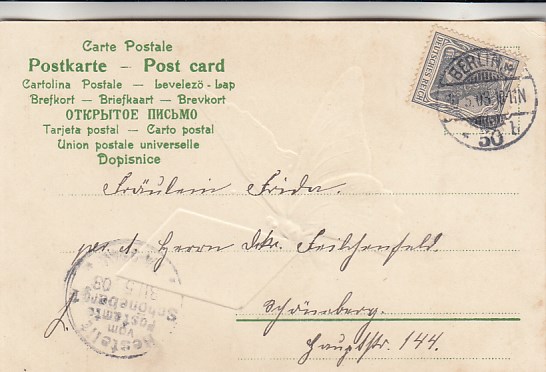 Carte Postale
Postkarte — Post card
Cartolina Postale — Levelező-Lap
Brefkort — Briefkaart — Brevkort
ОТКРЫТОЕ ПИСЬМО
Tarjeta postal — Carto postal
Union postale universelle
Dopisnice
DEUTSCHES REICH
BERLIN
50
Fräulein Frida.
per. Herrn Feilchenfeld.
Schöneberg.
Hauptstr. 144.
Bestellt
vom
Postamte
Schöneberg 1
31.5.03